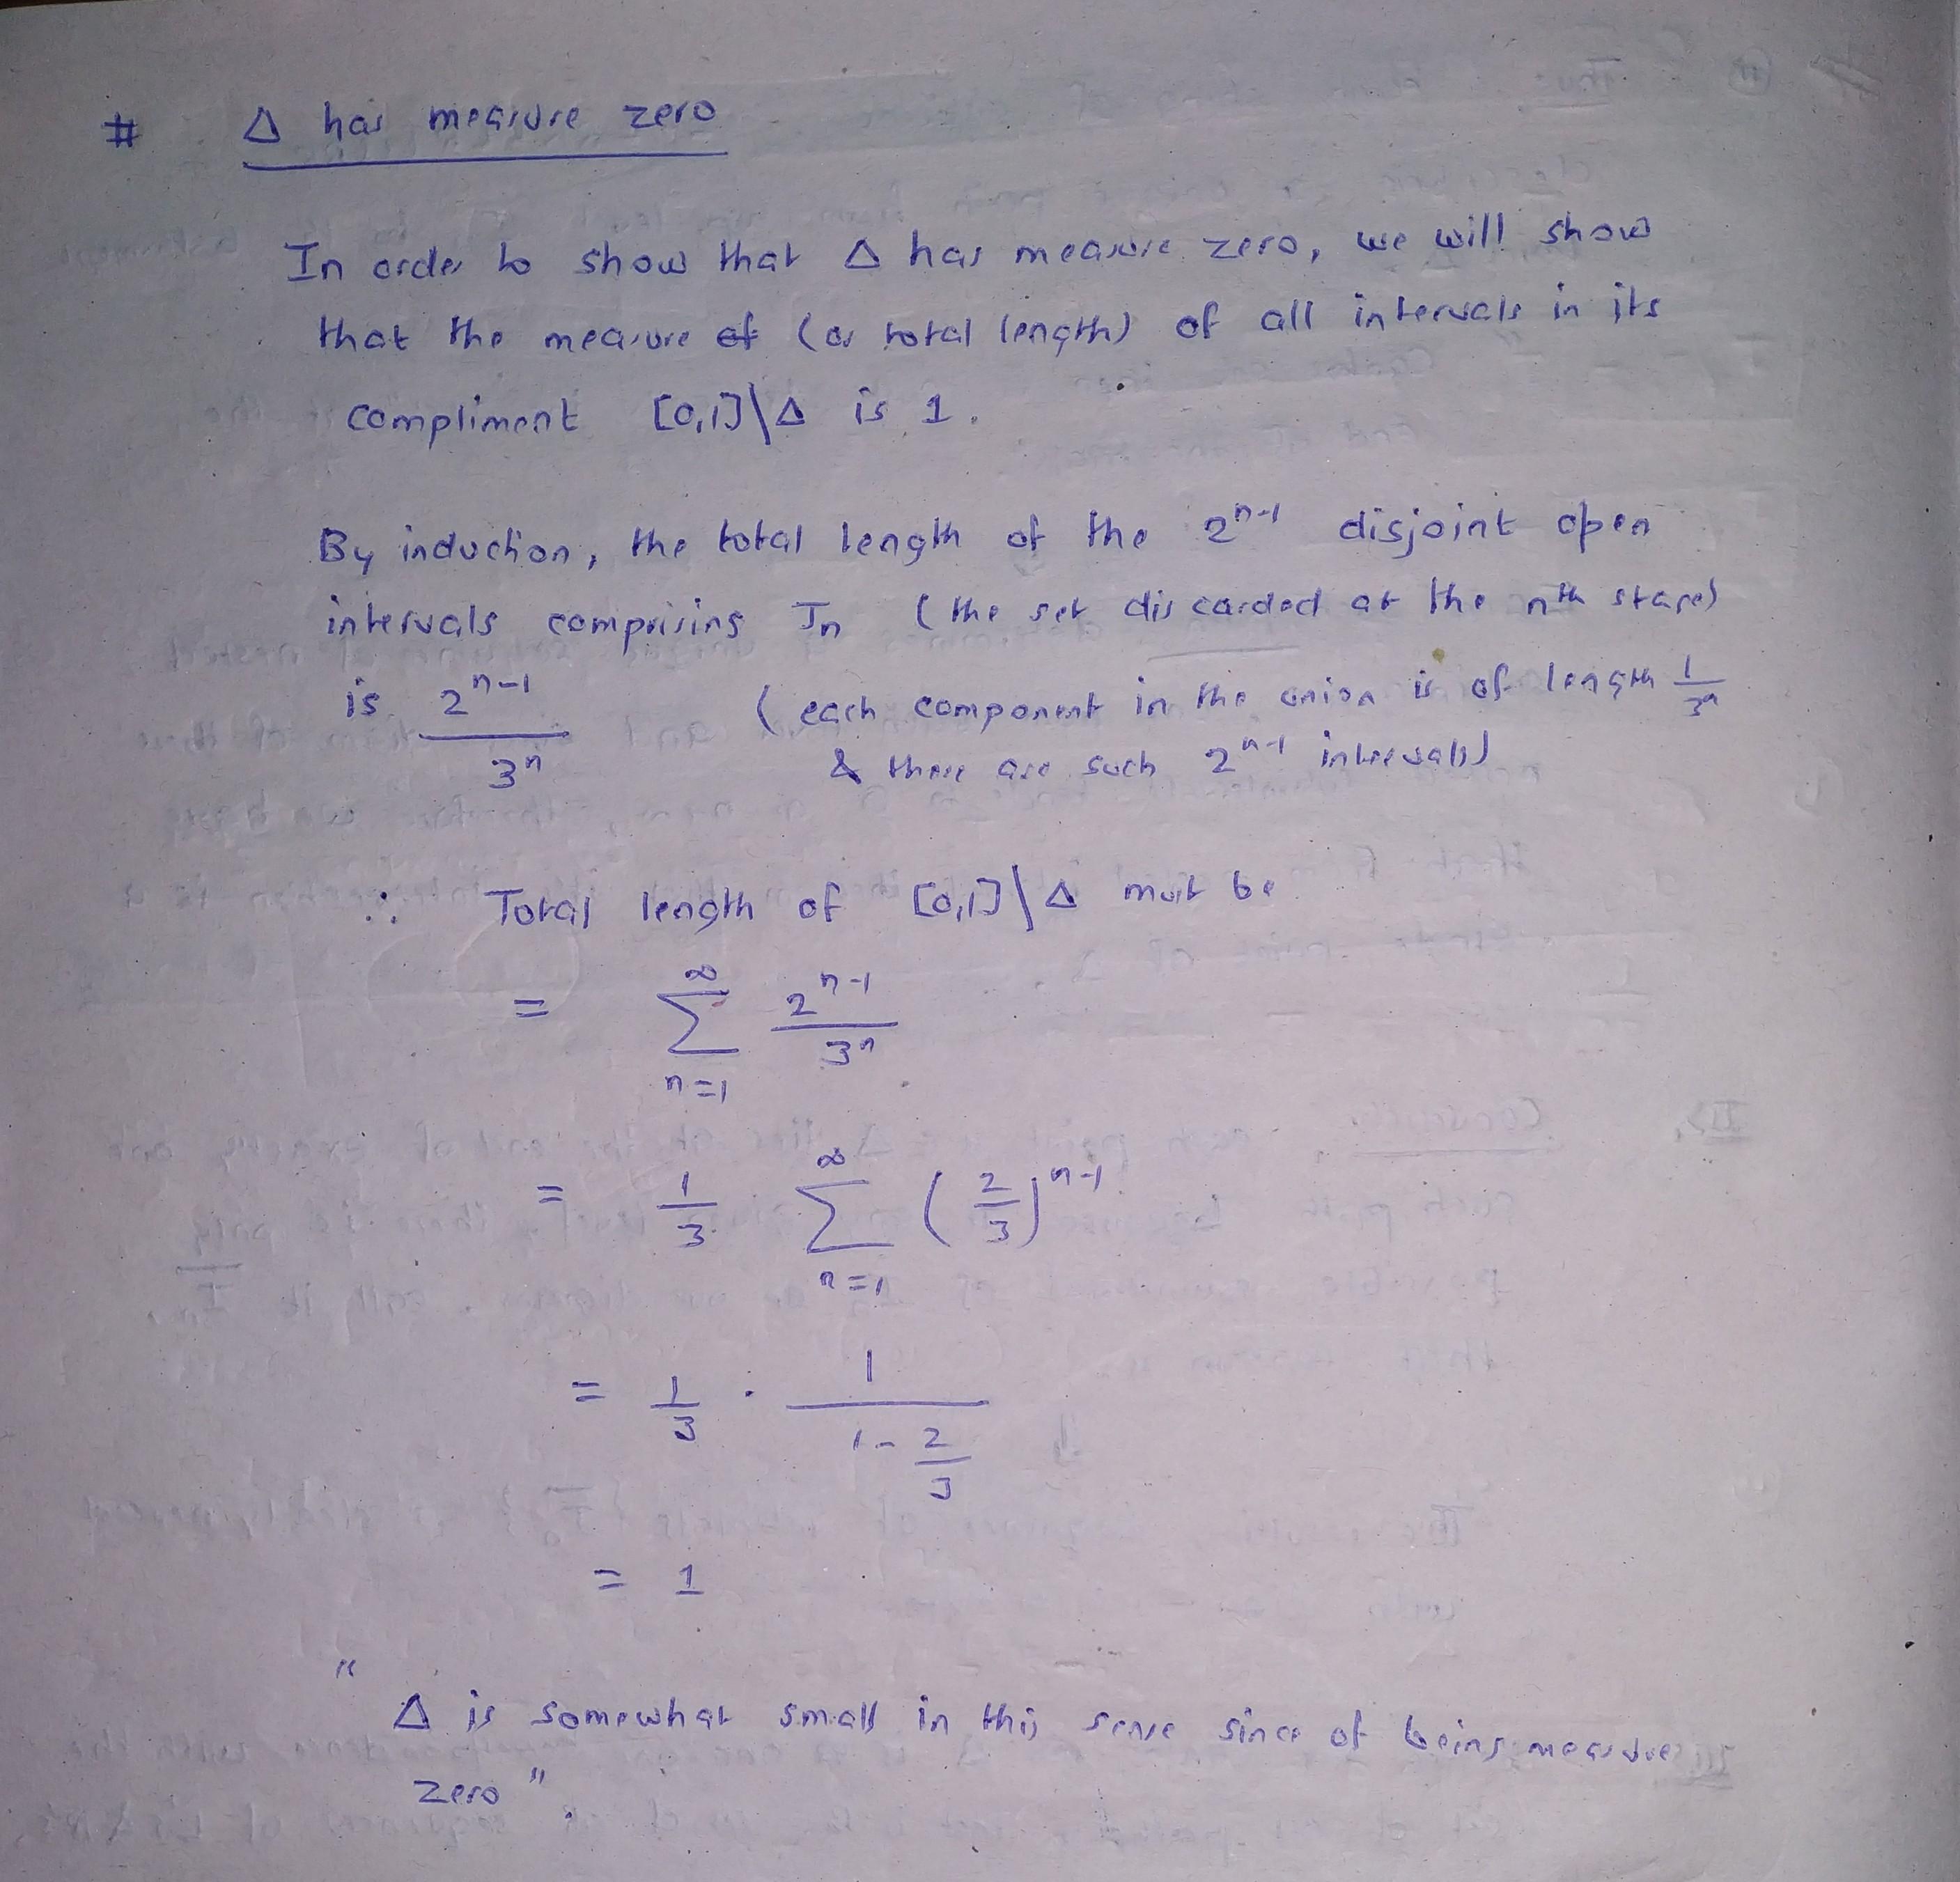 # Δ has measure zero
In order to show that Δ has measure zero, we will show
that the measure of (or total length) of all intervals in its
compliment [0,1]\Δ is 1.
By induction, the total length of the 2^{n-1} disjoint open
intervals comprising J_n (the set discarded at the nth stage)
is 2^{n-1}/3^n (each component in the union is of length 1/3^n
& there are such 2^{n-1} intervals)
∴ Total length of [0,1]\Δ must be
= ∑_{n=1}^{∞} 2^{n-1}/3^n
= 1/3 ∑_{n=1}^{∞} (2/3)^{n-1}
= 1/3 · 1/(1 - 2/3)
= 1
" Δ is somewhat small in this sense since of being measure
zero ".